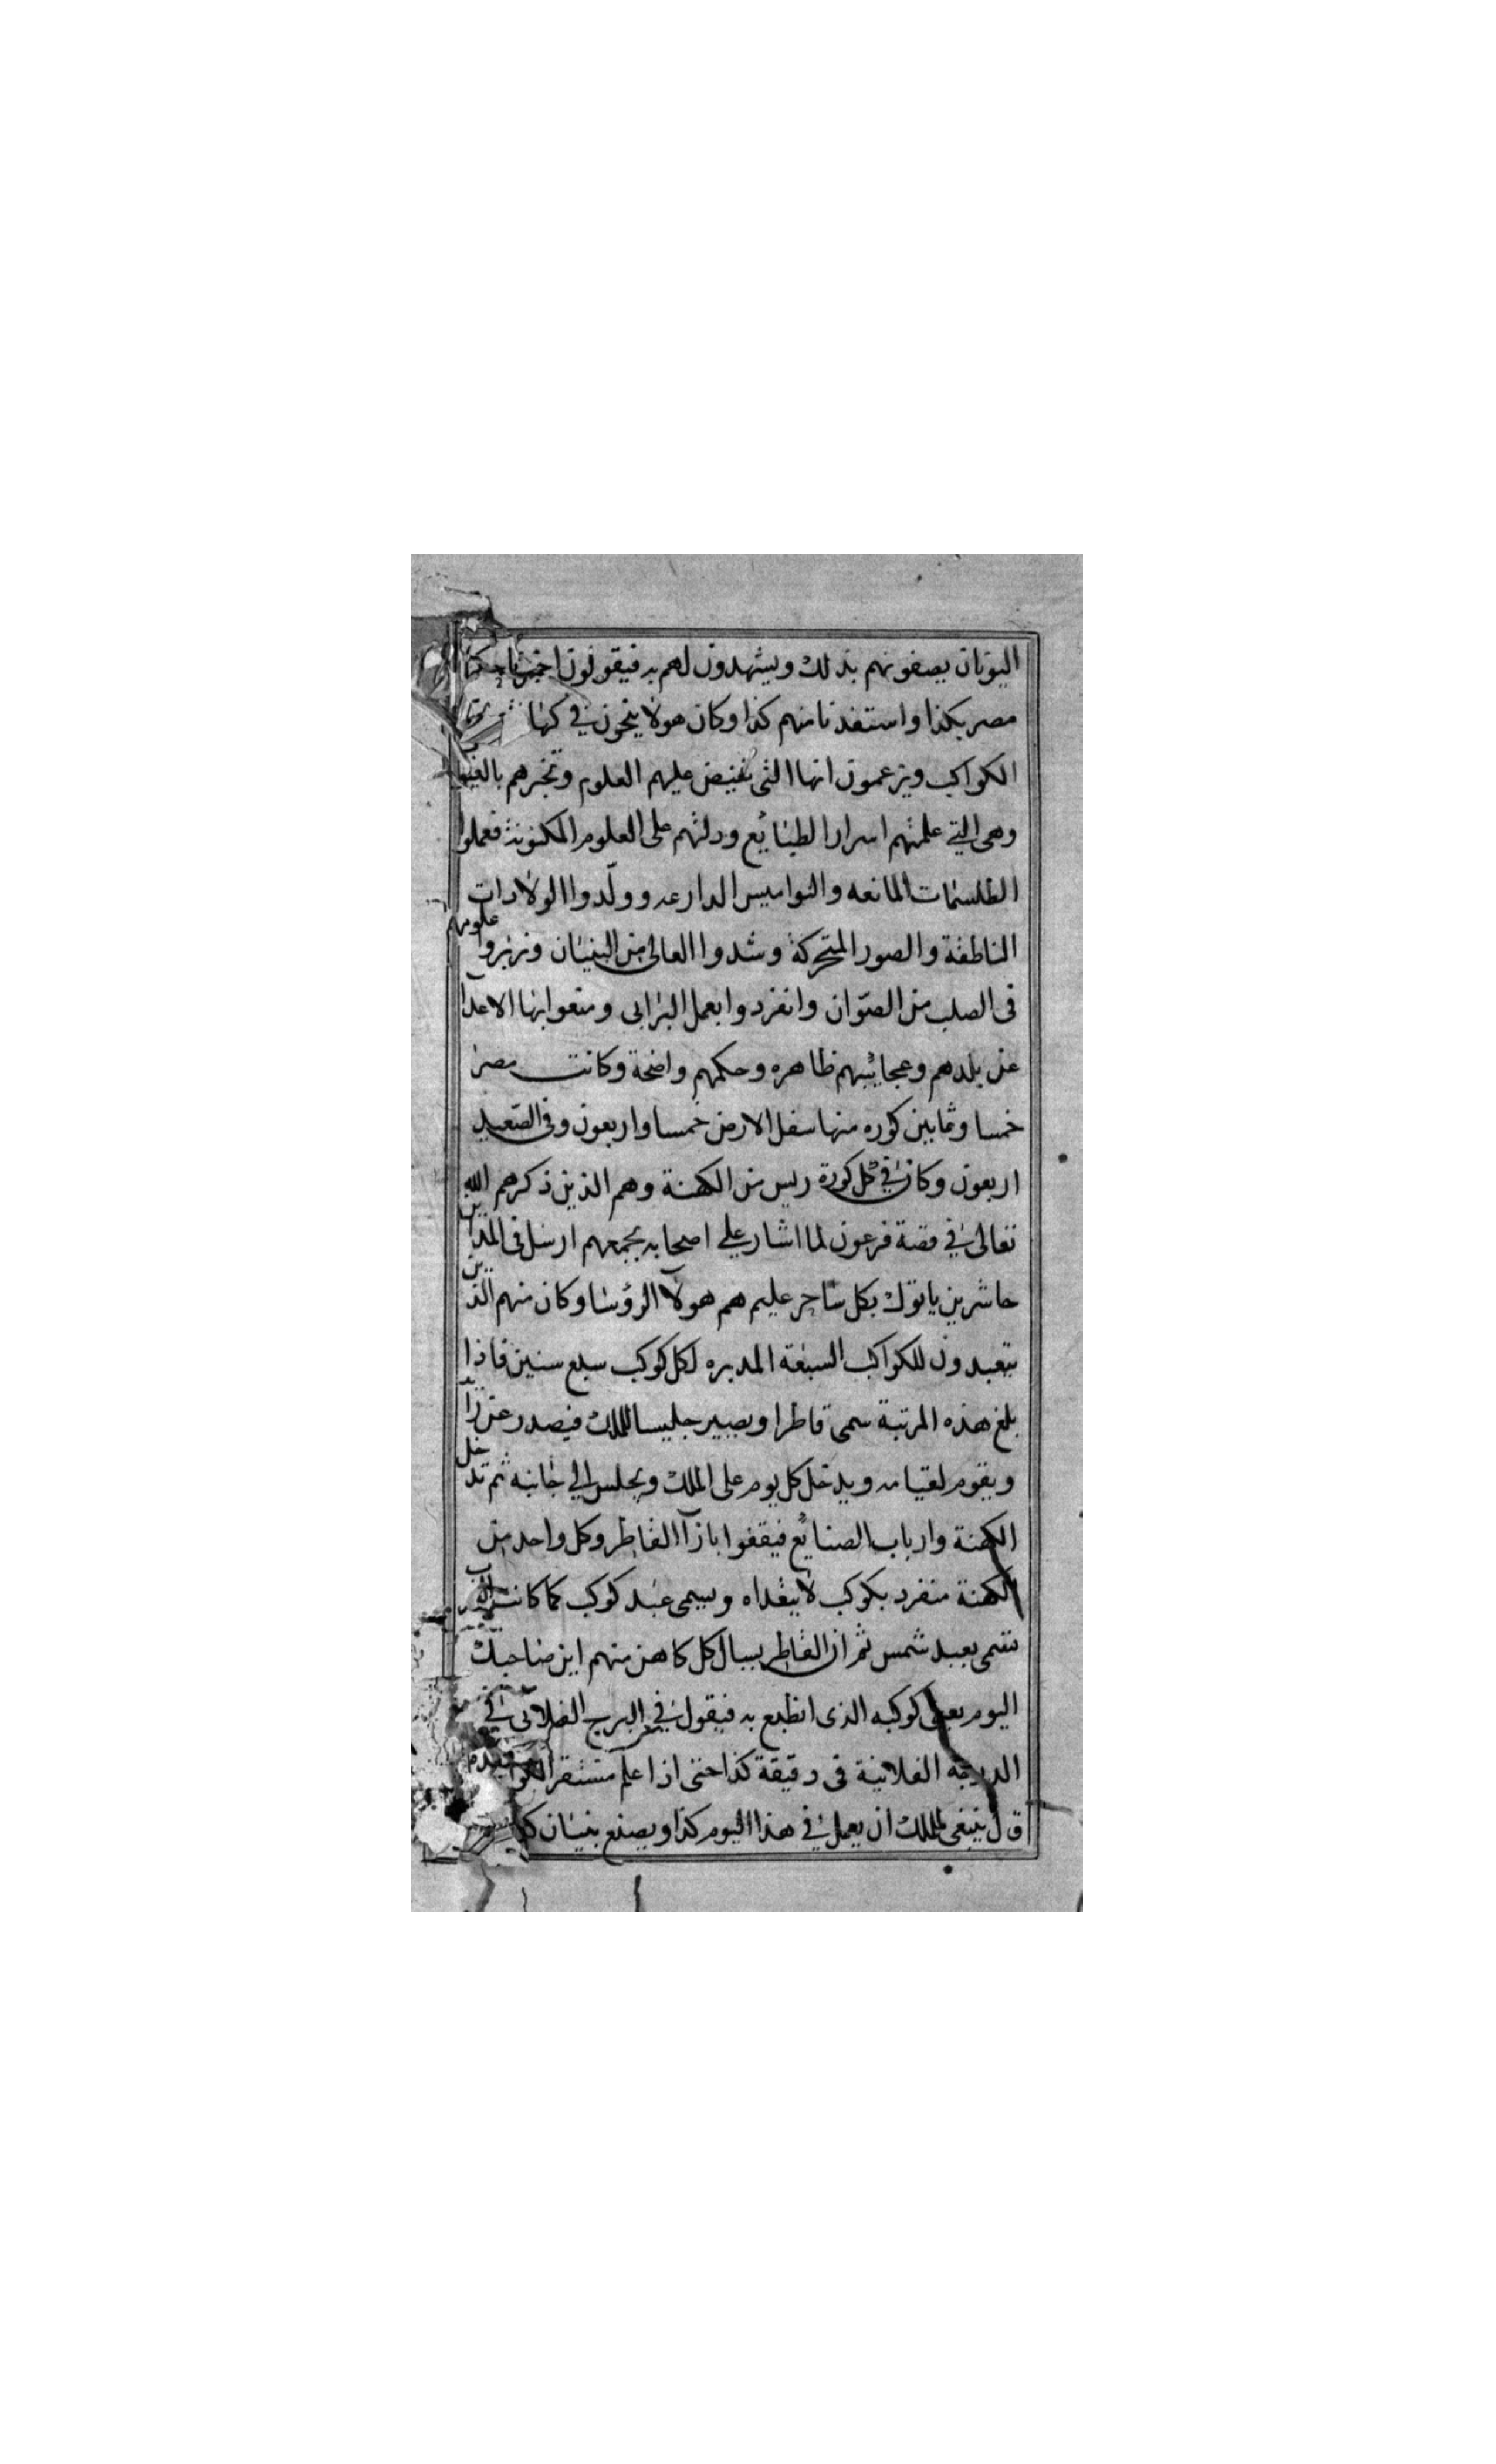 اليونان يصفونهم بذلك ويشهدون لهم به فيقولون اخبرنا حكما
مصر بكذا واستفدنا منهم كذا وكان هولا ينحون في كهانتهم نحو
الكواكب ويزعمون انها التي تفيض عليهم العلوم وتخبرهم بالغيوب
وهي التي علمتهم اسرار الطبايع ودلتهم على العلوم المكنونة فعملوا
الطلسمات المانعه والنواميس الدارعه وولّدوا الولادات
الناطقة والصور المتحركة وشدوا العالى من البنيان وزبروا علومهم
في الصلب من الصوّان وانفردوا بعمل البرابى ومنعوا بها الاعدآ
عن بلدهم وعجايبهم ظاهره وحكمهم واضحة وكانت مصر
خمسا وثمانين كوره منها سفل الارض خمسا واربعون وفي الصّعيد
اربعون وكان في كل كورة ريس من الكهنة وهم الذين ذكرهم الله
تعالى في قصة فرعون لما اشار علي اصحابه بجمعهم ارسل في المداين
حاشرين ياتوك بكل ساحر عليم هم هولآ الرؤسا وكان منهم الذين
يتعبدون للكواكب السبعة المدبره لكل كوكب سبع سنين فاذا
بلغ هذه المرتبة سمى قاطرا ويصير جليسا للملك فيصدر عن رايه
ويقوم لقيامه ويدخل كل يوم على الملك ويجلس الي جانبه ثم تدخل
الكهنة وارباب الصنايع فيقفوا بازآ القاطر وكل واحد من
الكهنة منفرد بكوكب لا يتعداه ويسمى عبد كوكب كما كانت العرب
تسمى بعبد شمس ثم ان القاطر يسال كل كاهن منهم اين صاحبك
اليوم يعنى كوكبه الذى انطبع به فيقول في البرج الفلانى في
الدرجة الفلانية في دقيقة كذا حتى اذا علم مستقر الكواكب
قال ينبغى للملك ان يعمل في هذا اليوم كذا ويصنع بنيان كذا